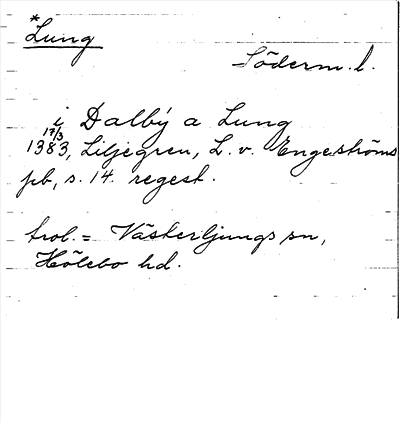 *Lung
Söderm. l.
i Dalby a Lung
17/3 1383, Liljegren, L. v. Engeströms
pb, s. 14. regest.
trol. = Västerljungs sn,
Hölebo hd.